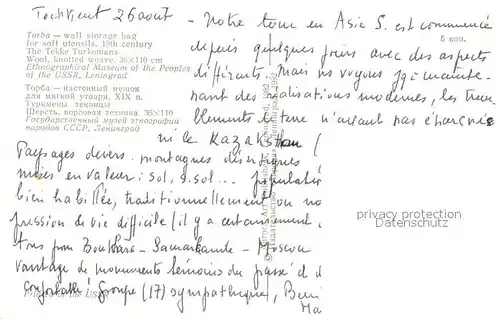 Tachkent 26 aout - Notre tour en Asie S. est commencé
depuis quelques jours avec des aspects
différents. Mais nous voyons mainte-
nant des réalisations modernes, les trem
blements de terre n'ayant pas épargnés
ni le Kazakstan (
Paysages divers. montagnes désertiques
mises en valeur: sol, s.sol... population
bien habillée, traditionnellement ou no
pression de vie difficile (il y a certainement
tons pour Boukhara - Samarkande - Moscou
vantage de monuments témoins du passé et d
confortable Groupe (17) sympathique,
Torba — wall storage bag
for soft utensils, 19th century
The Tekke Turkomans
Wool, knotted weave. 36×110 cm
Ethnographical Museum of the Peoples
of the USSR, Leningrad
Торба — настенный мешок
для мягкой утвари, XIX в.
Туркмены текинцы
Шерсть, ворсовая техника. 36×110
Государственный музей этнографии
народов СССР. Ленинград
5 коп.
Printed in the USSR
privacy protection
Datenschutz